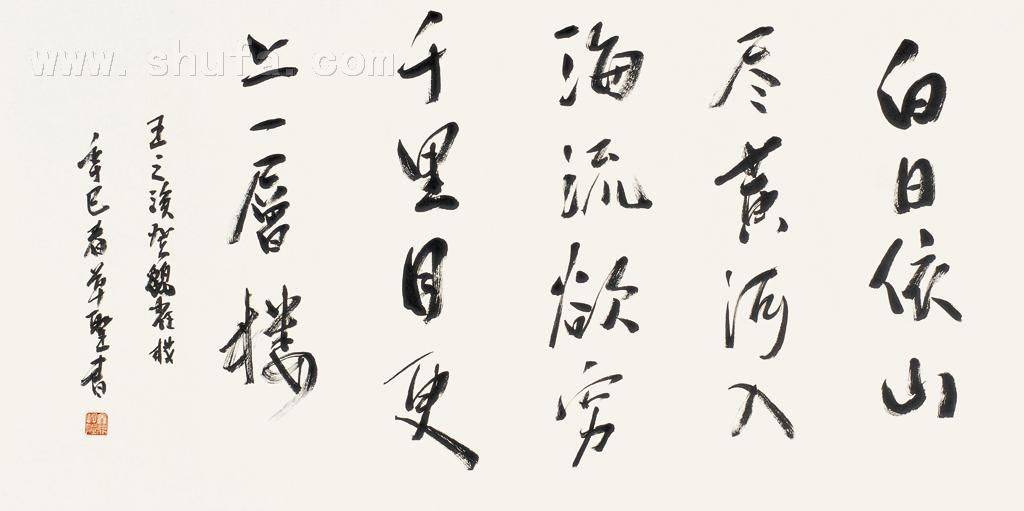 白日依山
尽黄河入
海流欲穷
千里目更
上一層楼
王之涣登鹳雀楼
辛巳春草聖书
www. shufa. com